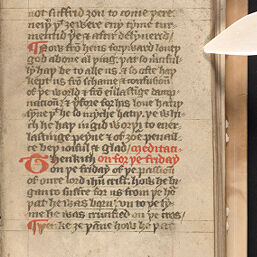 not suffrid ȝou to come þere.
neþir ȝe were eny tyme tur-
mentid þe & aftir delyuered/
¶ Now fro hens forward loueþ
god aboue al þing. þat so mercifulli
haþ be to alle us. & so ofte haþ
kept us fro schame & confusion
of þe world & fro euerlastinge damp
nacioun; & þerfore for his loue hatiþ
synne þt he so myche hatiþ. þe whi-
ch he haþ in god worþi to euer-
lastinge peyne & of ȝoure penaunce
be ȝe ioiful & glad/ meditaci-
Thenkith on for þe friday
on þe friday of þe passion
of oure lord ihu crist. how he bi-
gan to suffre for us from þe hour
þat he was born/ vn to þe ty-
me he was crucified on þe cros/
¶ þenke ȝe þanne how he was